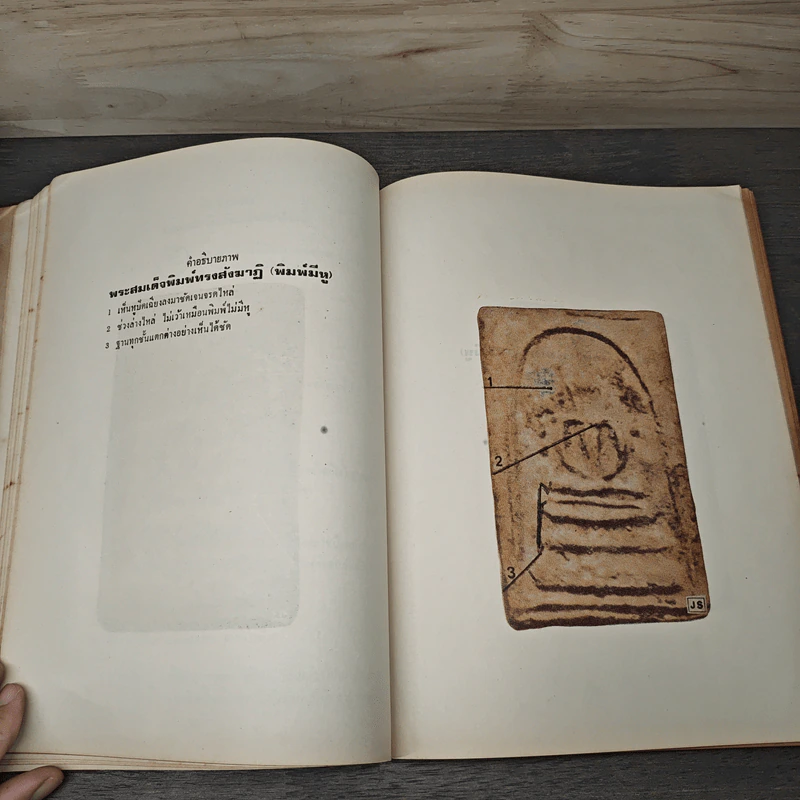 คำอธิบายภาพ
พระสมเด็จพิมพ์ทรงสังฆาฏิ (พิมพ์มีหู)
1 เห็นหูยืดเฉียงลงมาชัดเจนจรดไหล่
2 ช่วงล่างไหล่ ไม่เว้าเหมือนพิมพ์ไม่มีหู
3 ฐานทุกชั้นแตกต่างอย่างเห็นได้ชัด
1
2
3
JS